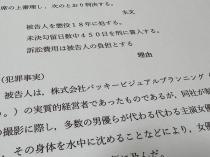 席の上審理し、次のとおり判決する。
主文
被告人を懲役18年に処する。
未決勾留日数中450日を刑に算入する。
訴訟費用は被告人の負担とする
理由
(犯罪事実)
被告人は、株式会社バッキービジュアルプランニング
の実質的経営者であったものであるが、同社が
の撮影に際し、多数の男優らが代わる代わる主演女
、その身体を水中に沈めることなどにより、女優